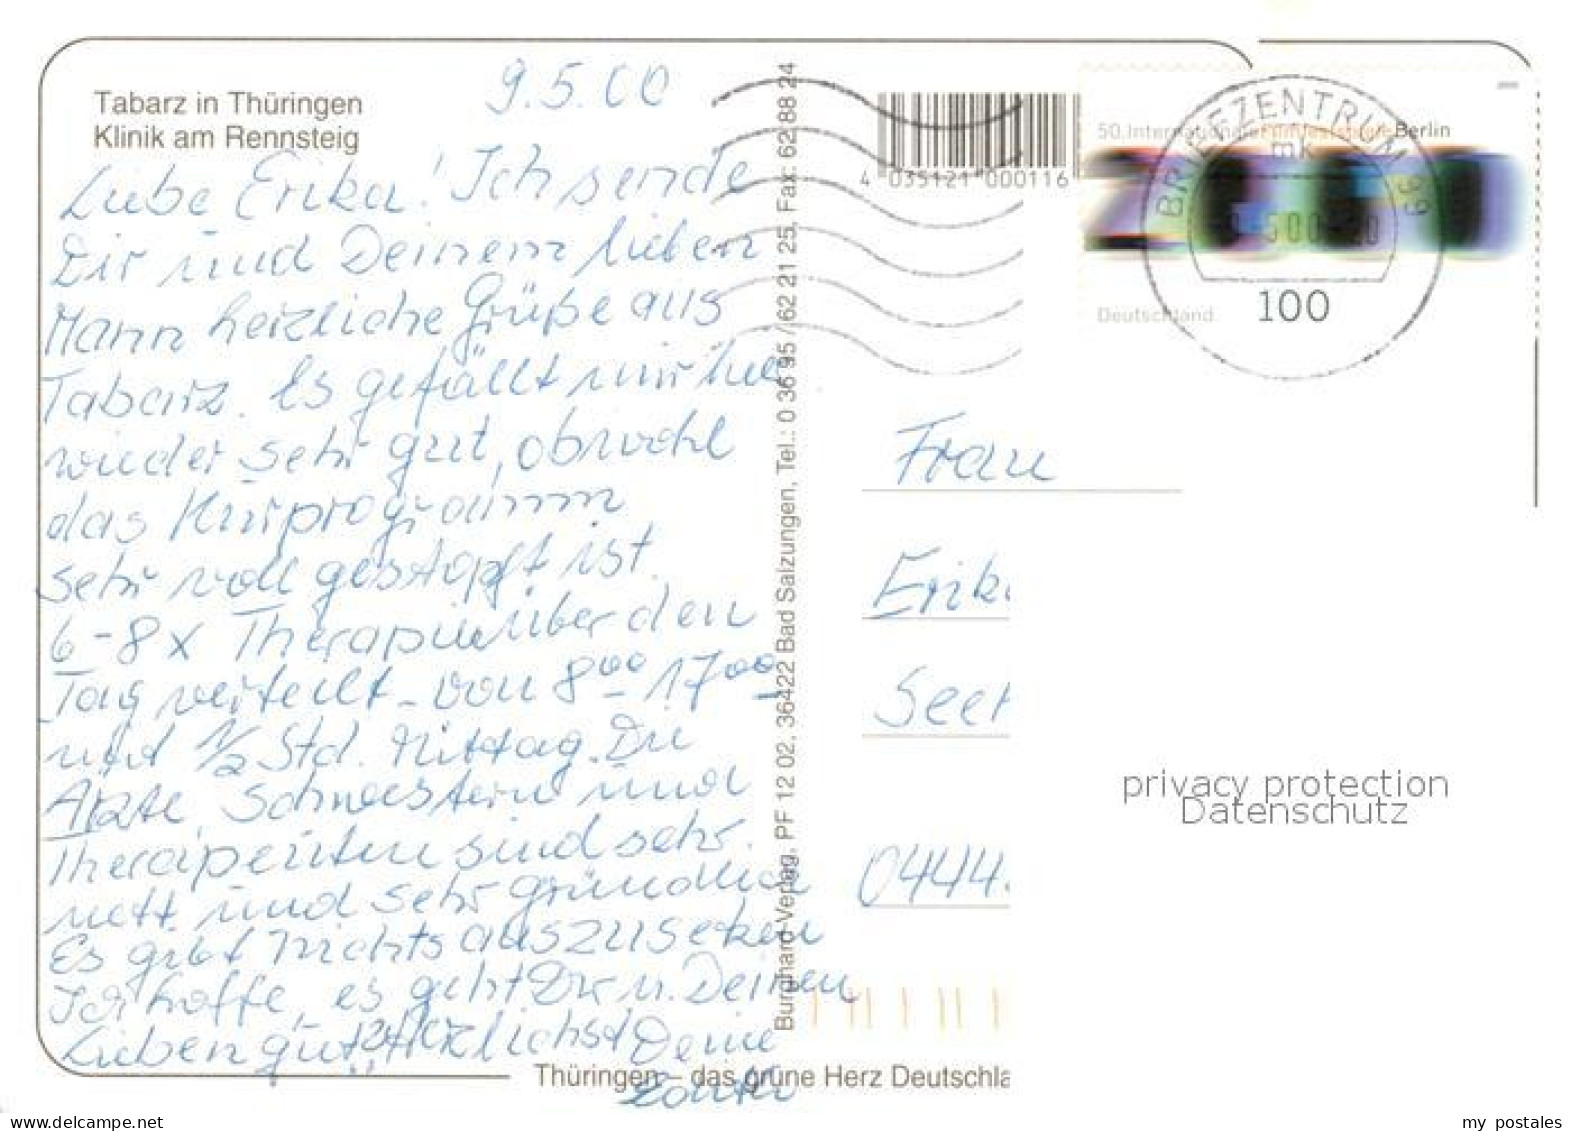 9.5.00
Tabarz in Thüringen
Klinik am Rennsteig
Liebe Erika! Ich sende
Dir und Deinem lieben
Mann herzliche Grüße aus
Tabarz. Es gefällt mir hier
wieder sehr gut, obwohl
das Kurprogramm
sehr voll gestopft ist.
6-8x Therapien über den
Tag verteilt - von 8⁰⁰-17⁰⁰
und 1/2 Std. Mittag. Die
Ärzte, Schwestern und
Therapeuten sind sehr
nett und sehr gründlich
Es gibt nichts auszusetzen
Ich hoffe, es geht Dir u. Deinen
Lieben gut. Herzlichst Deine
Burghard-Verlag, PF 12 02, 36422 Bad Salzungen, Tel.: 0 36 95 / 62 21 25, Fax: 62 88 24
4 035121 000116
50. Internationale Funkausstellung Berlin
Deutschland
100
BRIEFZENTRUM 99
mk
Frau
Erik
See
0444
privacy protection
Datenschutz
Thüringen – das grüne Herz Deutschla
my postales
www.delcampe.net